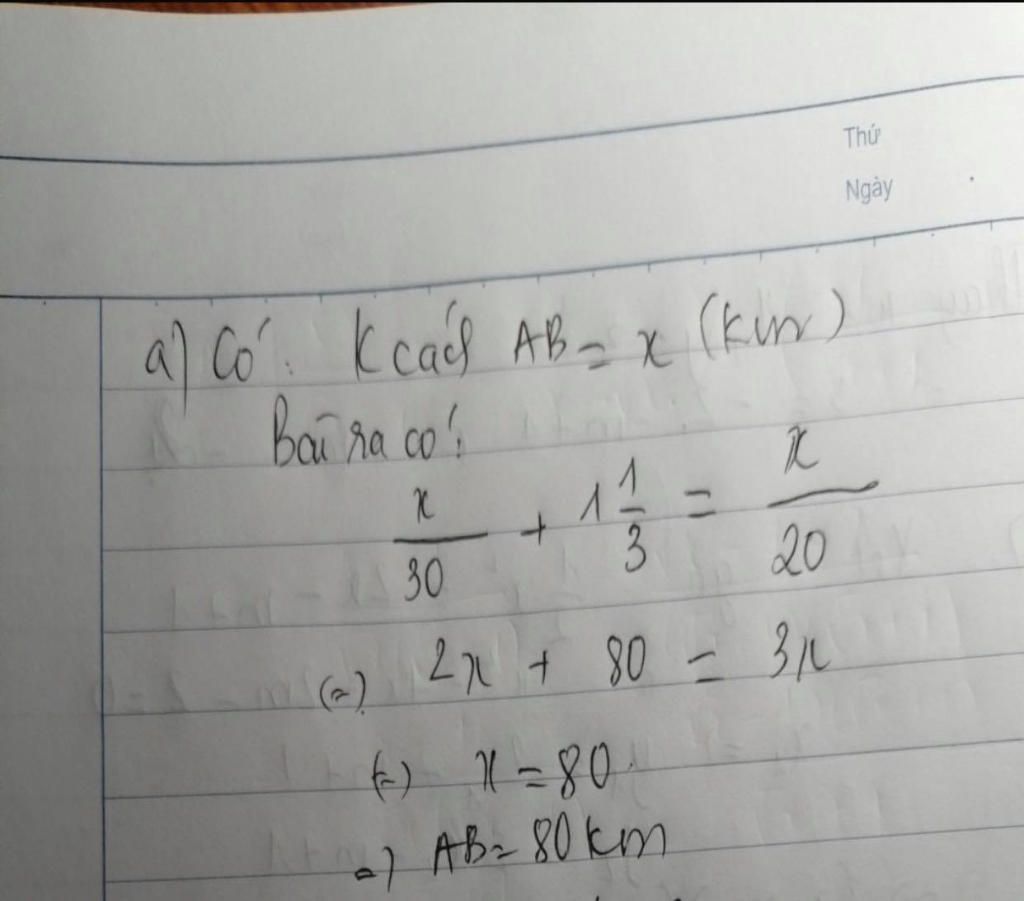 Thứ
Ngày
a) Có: K cách AB = x (km)
Bài ra có:
x/30 + 1 1/3 = x/20
(=) 2x + 80 = 3x
(=) x = 80
=) AB = 80 km